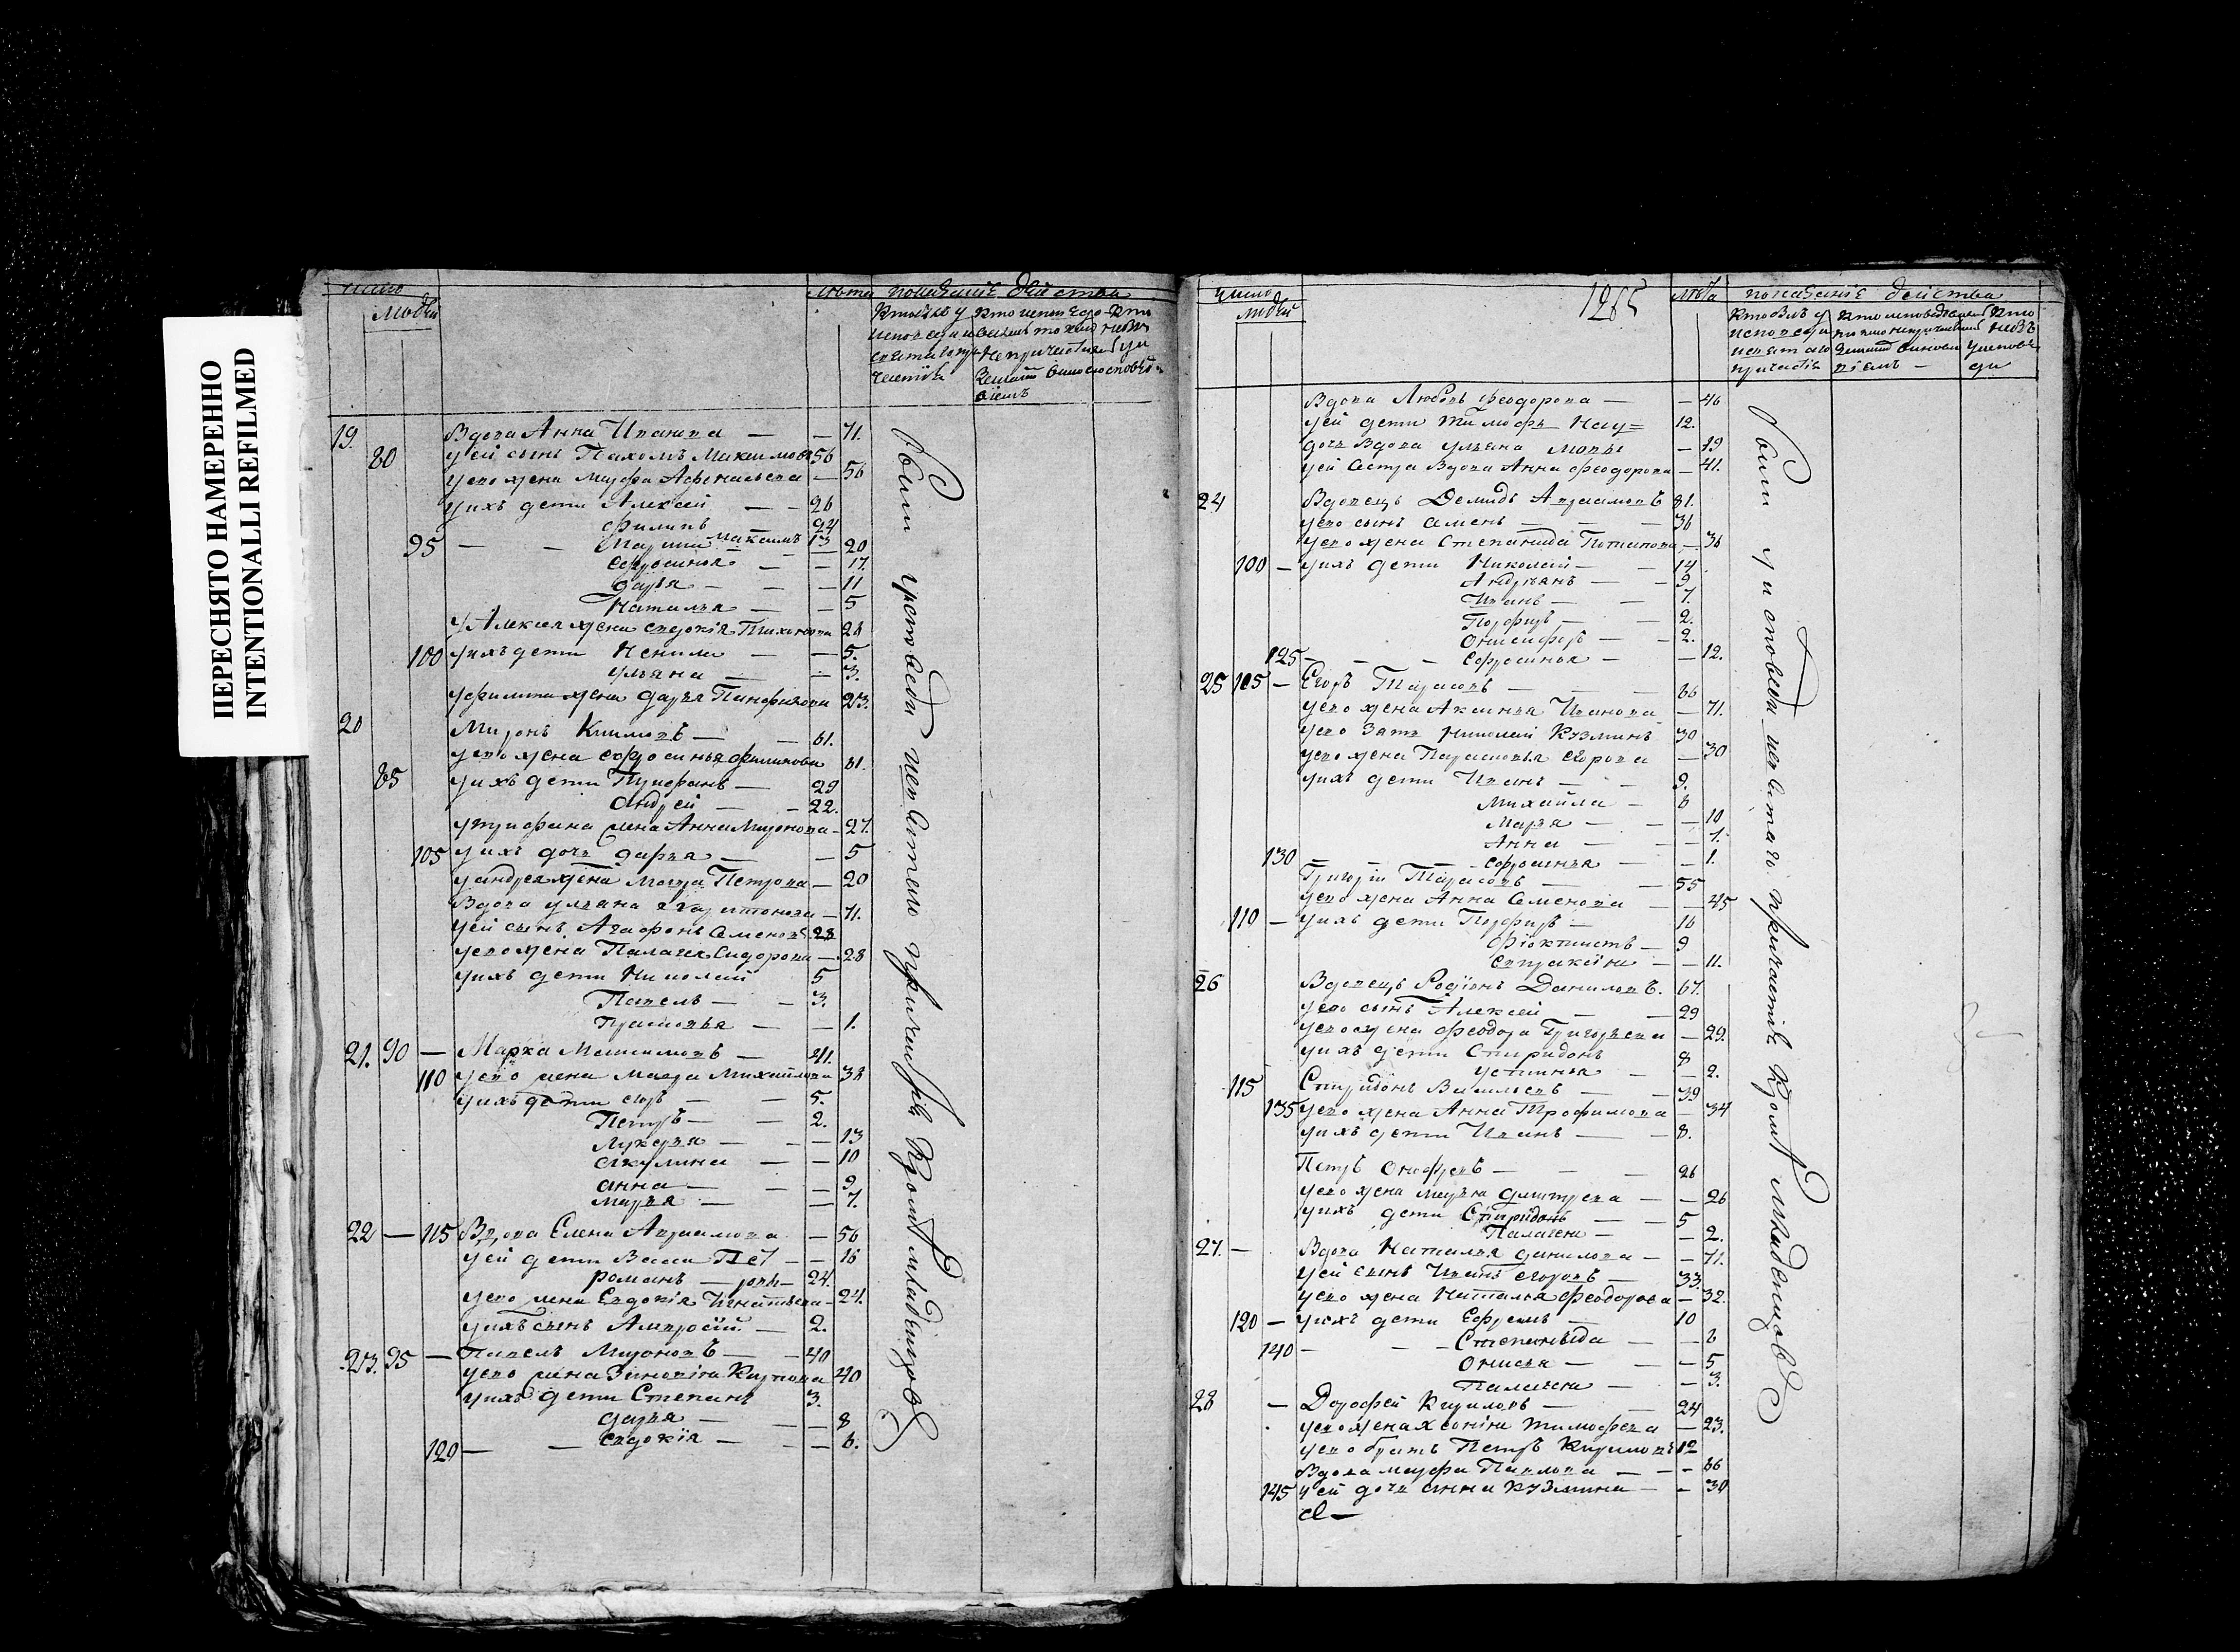 ПЕРЕСНЯТО НАМЕРЕННО
INTENTIONALLI REFILMED
число
людей
лѣта показаніе действа
19. Вдова Анна Иванова — — 71.
80 у ей сынъ Пахомъ Максимовъ 56
у ево жена Марфа Афонасьева — 56
у ихъ дети Алексей — — 26
Филипъ 24
Максимъ 13
95 — — Марья 20
Ефросинья — — 17.
Дарья — — 11
Наталья — — 5
У Алексея жена Евдокія Тихонова 28
100 у ихъ дети — 5.
Ульяна — — 3.
у Филипа жена Дарья Панфилова 23.
20 Миронъ Климовъ — — 61.
у ево жена Ефросинья Филипова 61.
85 у ихъ дети Трифанъ — 29
Андрей — — 22.
у Трифана жена Анна Миронова — 27.
105 у ихъ дочь Дарья — — 5
у Андрея жена Марья Петрова — 20
Вдова Ульяна Харитонова — 71.
у ей сынъ Агафонъ Семеновъ 28
у ево жена Палагея Сидорова — 28
у ихъ дети Николай 5
Павелъ — — 3.
Прасковья — — 1.
21. 90 — Марка Максимовъ — 41.
110 у ево жена Марья Михайлова 38
у ихъ дети Егоръ — — 5.
Петръ — — 2.
Лукерья — — 13
Акулина — — 10
Анна — — 9
Марья — — 7.
22 — 115 Вдова Елена Авраамова — 56
у ей дети Васса Пет — — 16
романъ — ровы — 24.
у ево жена Евдокія Игнатьева — 24.
у ихъ сынъ Амвросій — 2.
23. 95 — Павелъ Мироновъ — — 40
у ево жена Зиновія Карпова 40
у ихъ дети Степанъ 3.
Дарья — — 8
120 — — Евдокія — — 6.
были у исповеди и у святаго причастія Кроме младенцовъ
1865
число
людей
лѣта показаніе действа
Вдова Любовь Феодорова — — 46
у ей дети Тимофъ Нау= 12.
дочь Вдова Ульяна мовы — 19
у ей сестра Вдова Анна Феодорова — 41.
24 Вдовецъ Демидъ Авраамовъ 81.
у ево сынъ Семенъ — — 36
у ево жена Степанида Потапова — 36
100 — у ихъ дети Николай — — 14.
Андреянъ — — 9
Иванъ — — 7.
Порфиръ — — 2.
Онисифоръ — — 2.
125 — — — Ефросинья — — 12.
25 105 — Егоръ Тарасовъ — — 66
у ево жена Аксинья Иванова — 71.
у ево Зать Николай Кузминъ 30
у ево жена Парасковья Егорова — 30
у ихъ дети Иванъ — — 9.
Михайла — 6
Марья — — 10
Анна — — 7.
130 — — — Ефросинья — — 1.
Григорій Тарасовъ — — 55
у ево жена Анна Семенова — — 45
110 — у ихъ дети Порфиръ — 16
Фіоктистъ — 9
Евпраксіна — — 11.
26 Вдовецъ Родіонъ Даниловъ. 67.
у ево сынъ Алексей — — 29
у ево жена Феодора Григорьева — 29.
у ихъ дети Спиридонъ 8
Устинья — — 2.
115 Спиридонъ Васильевъ — — 39
135 у ево жена Анна Трофимова — 34
у ихъ дети Иванъ — — 8.
Петръ Онофревъ — — — 26
у ево жена Марья Дмитрева — — 26
у ихъ дети Спиридонъ — — 5
Палагея — — 2.
27. — Вдова Наталья Данилова — — 71.
у ей сынъ Иванъ Егоровъ — 33.
у ево жена Наталья Феодорова — 32.
120 — у ихъ дети Ефремъ — 10
140 — — — Степанида — — 6
Онисья — — — 5
Палагея — — 3.
28 — Дорофей Кириловъ — — 24
у ево жена Хеонія Тимофева — 23.
у ево братъ Петръ Кириловъ 12
Вдова Марфа Павлова — — — 66
145 у ей дочь Анна Кузмина — — 30
были у исповеди и святаго причастія Кроме младенцовъ